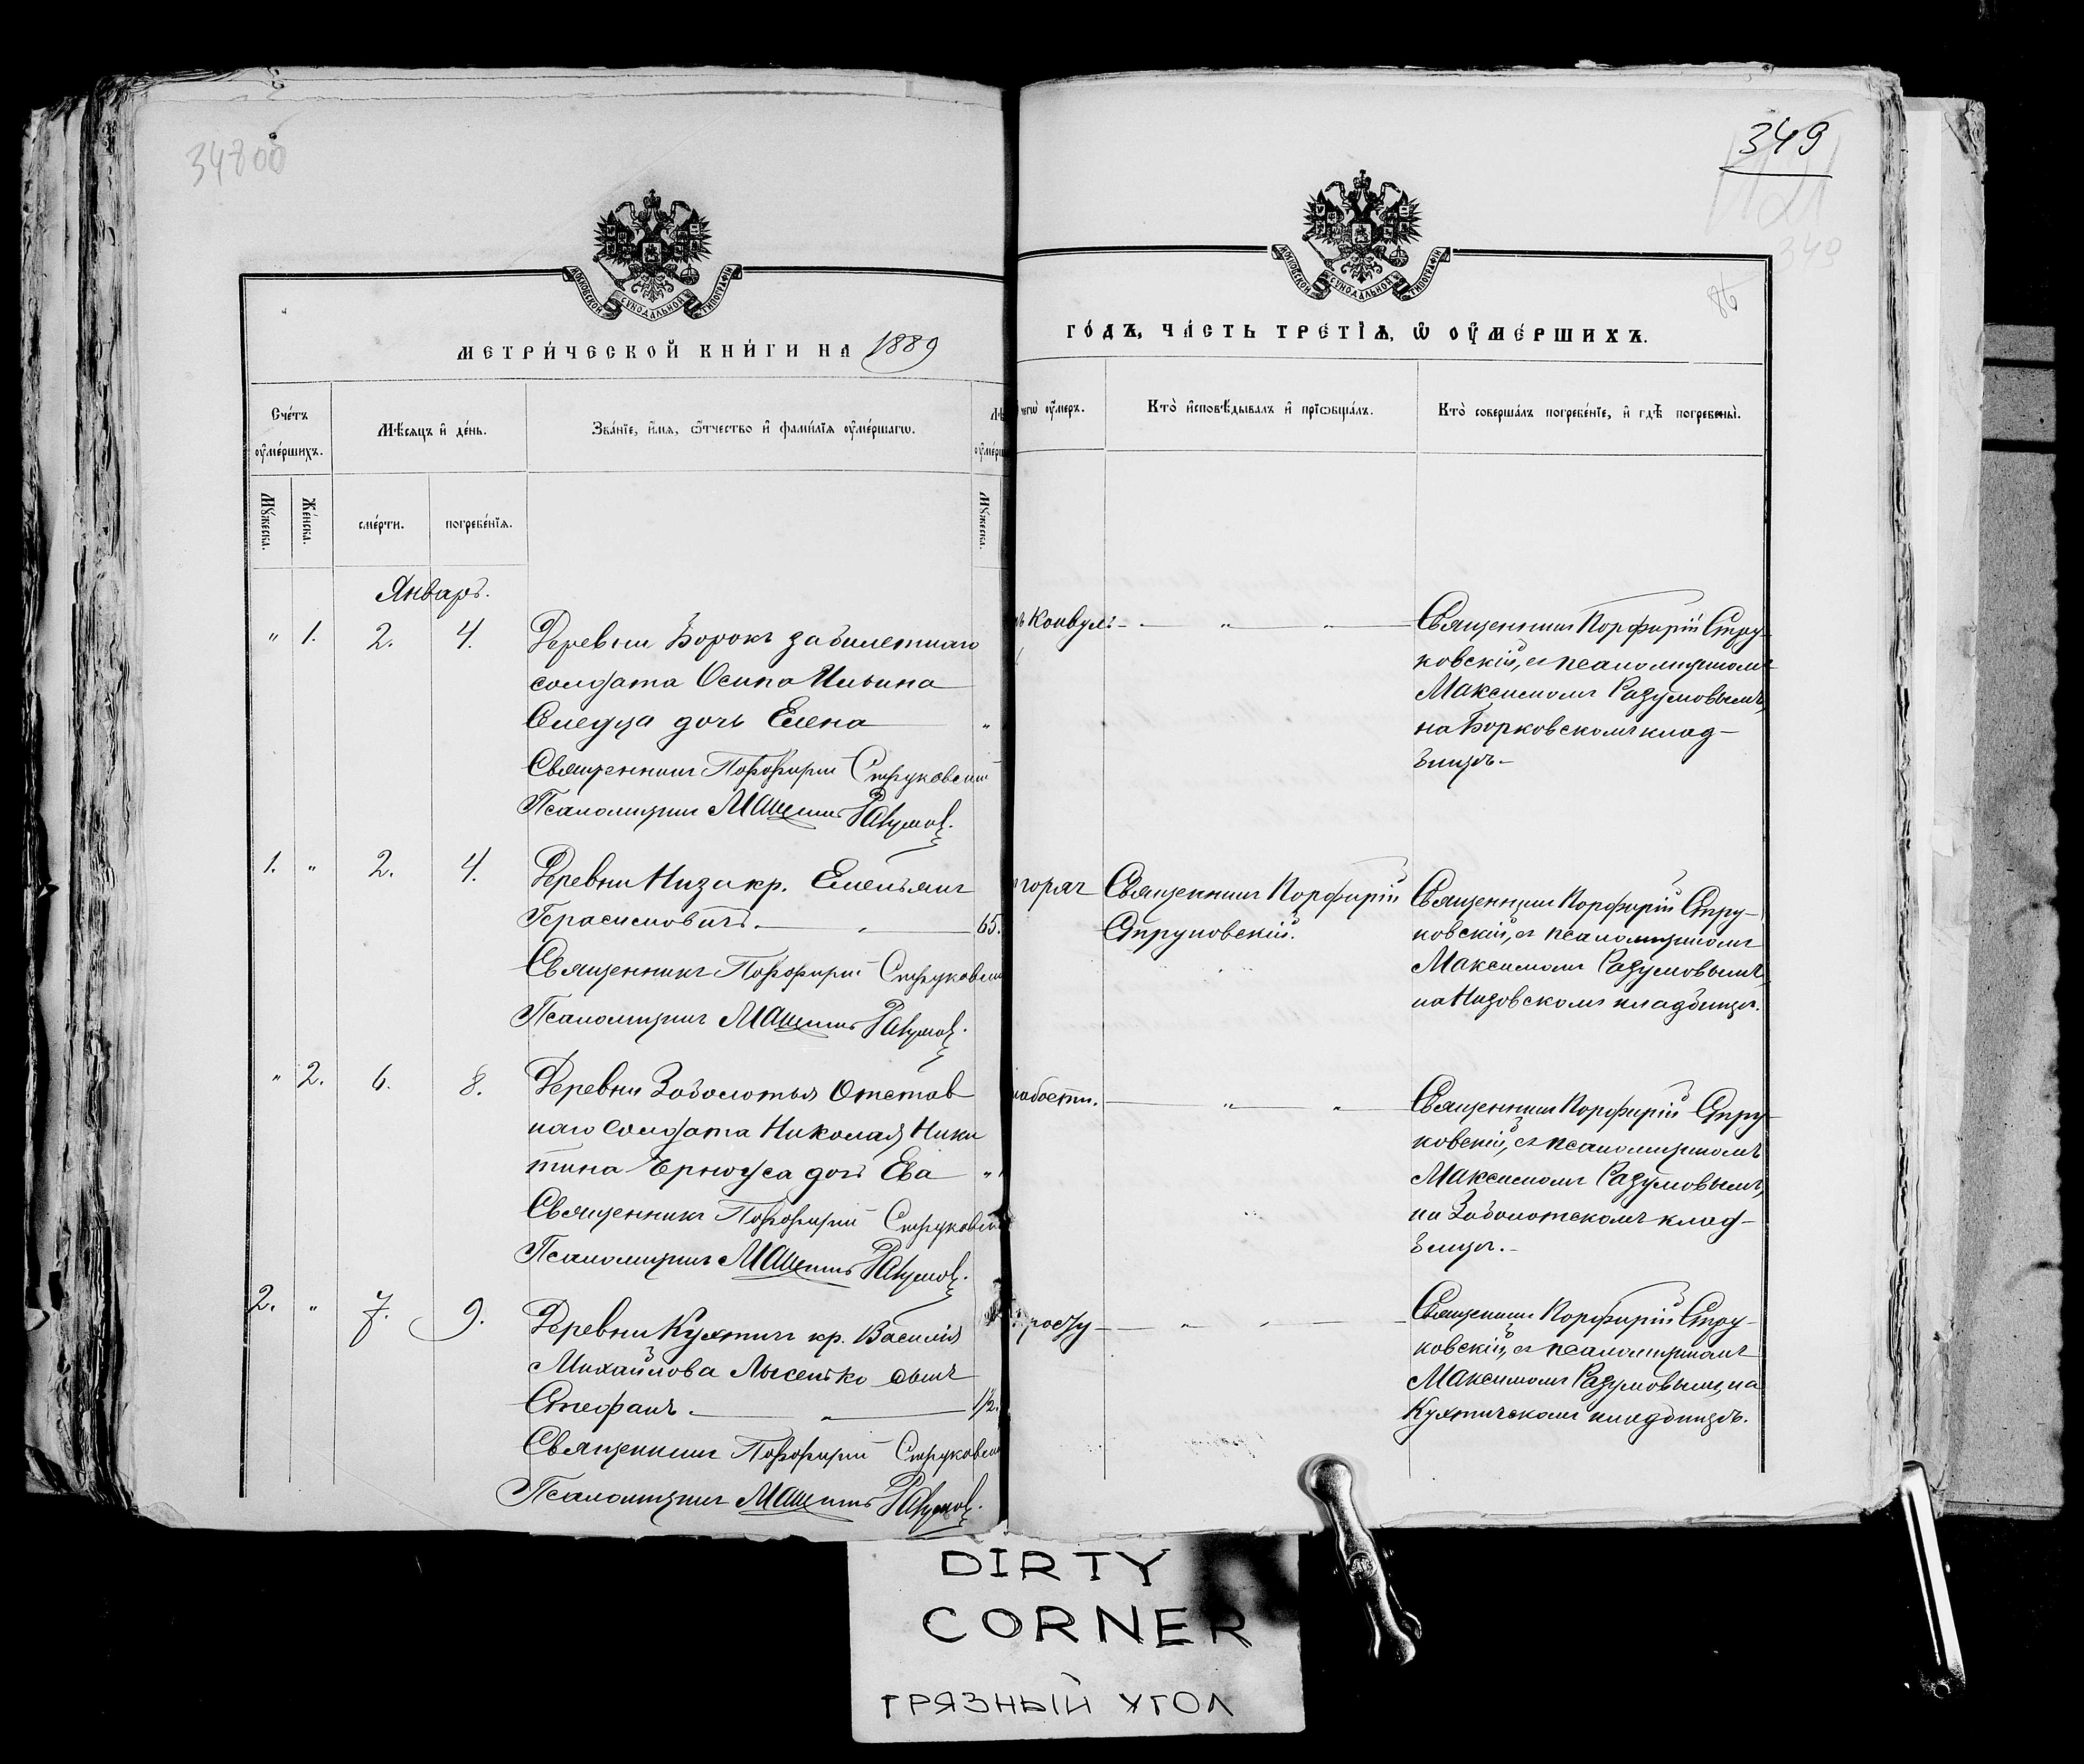 34800
349
340
86
МОСКОВСКОЙ СѴНОДАЛЬНОЙ ТИПОГРАФІИ
МОСКОВСКОЙ СѴНОДАЛЬНОЙ ТИПОГРАФІИ
МЕТРИ́ЧЕСКОЙ КНИ́ГИ НА 1889
ГО́ДЪ, ЧА́СТЬ ТРЕ́ТІѦ, Ѡ҆ ОУ҆МЕ́РШИХЪ.
Сче́тъ оу҆ме́ршихъ.
Мѣ́сяцъ и҆ де́нь.
Зва́нїе, и҆́мѧ, ѻ҆́тчество и҆ фами́лїѧ оу҆ме́ршагѡ.
Лѣ
оу҆ме́рш
чегѡ̀ оу҆́меръ.
Кто̀ и҆сповѣ́дывалъ и҆ прїѡбща́лъ.
Кто̀ соверша́лъ погребе́нїе, и҆ гдѣ̀ погребены̀.
Мꙋ́жеска.
Же́нска.
сме́рти.
погребе́нїѧ.
Мꙋ́жеска.
Январь.
" 1. 2. 4.
Деревни Борокъ забилетнаго
солдата Осипа Ильина
Следца дочь Елена "
Священникъ Порфирій Струковскій
Псаломщикъ Максимъ Разумов.
Конвул:
" "
Священникъ Порфирій Стру-
ковскій, съ псаломщикомъ
Максимомъ Разумовымъ,
на Борковскомъ клад-
бищѣ.
1. " 2. 4.
Деревни Низа кр. Емельянъ
Герасимовичъ. " 65.
Священникъ Порфирій Струковскій
Псаломщикъ Максимъ Разумов.
горяч
Священникъ Порфирій
Струковскій.
Священникъ Порфирій Стру-
ковскій, съ псаломщикомъ
Максимомъ Разумовымъ,
на Низовскомъ кладбищѣ.
" 2. 6. 8.
Деревни Заболотья Отстав
наго солдата Николая Ники
тина Ева "
Священникъ Порфирій Струковскій
Псаломщикъ Максимъ Разумов.
лабости.
" "
Священникъ Порфирій Стру-
ковскій, съ псаломщикомъ
Максимомъ Разумовымъ,
на Заболотскомъ клад-
бищѣ.
2. " 7. 9.
Деревни Кухтичъ кр. Василія
Михайлова Лысенко сынъ
Стефанъ. " 1/2.
Священникъ Порфирій Струковскій
Псаломщикъ Максимъ Разумов.
" "
Священникъ Порфирій Стру-
ковскій, съ псаломщикомъ
Максимомъ Разумовымъ, на
Кухтичскомъ кладбищѣ.
DIRTY
CORNER
ГРЯЗНЫЙ УГОЛ